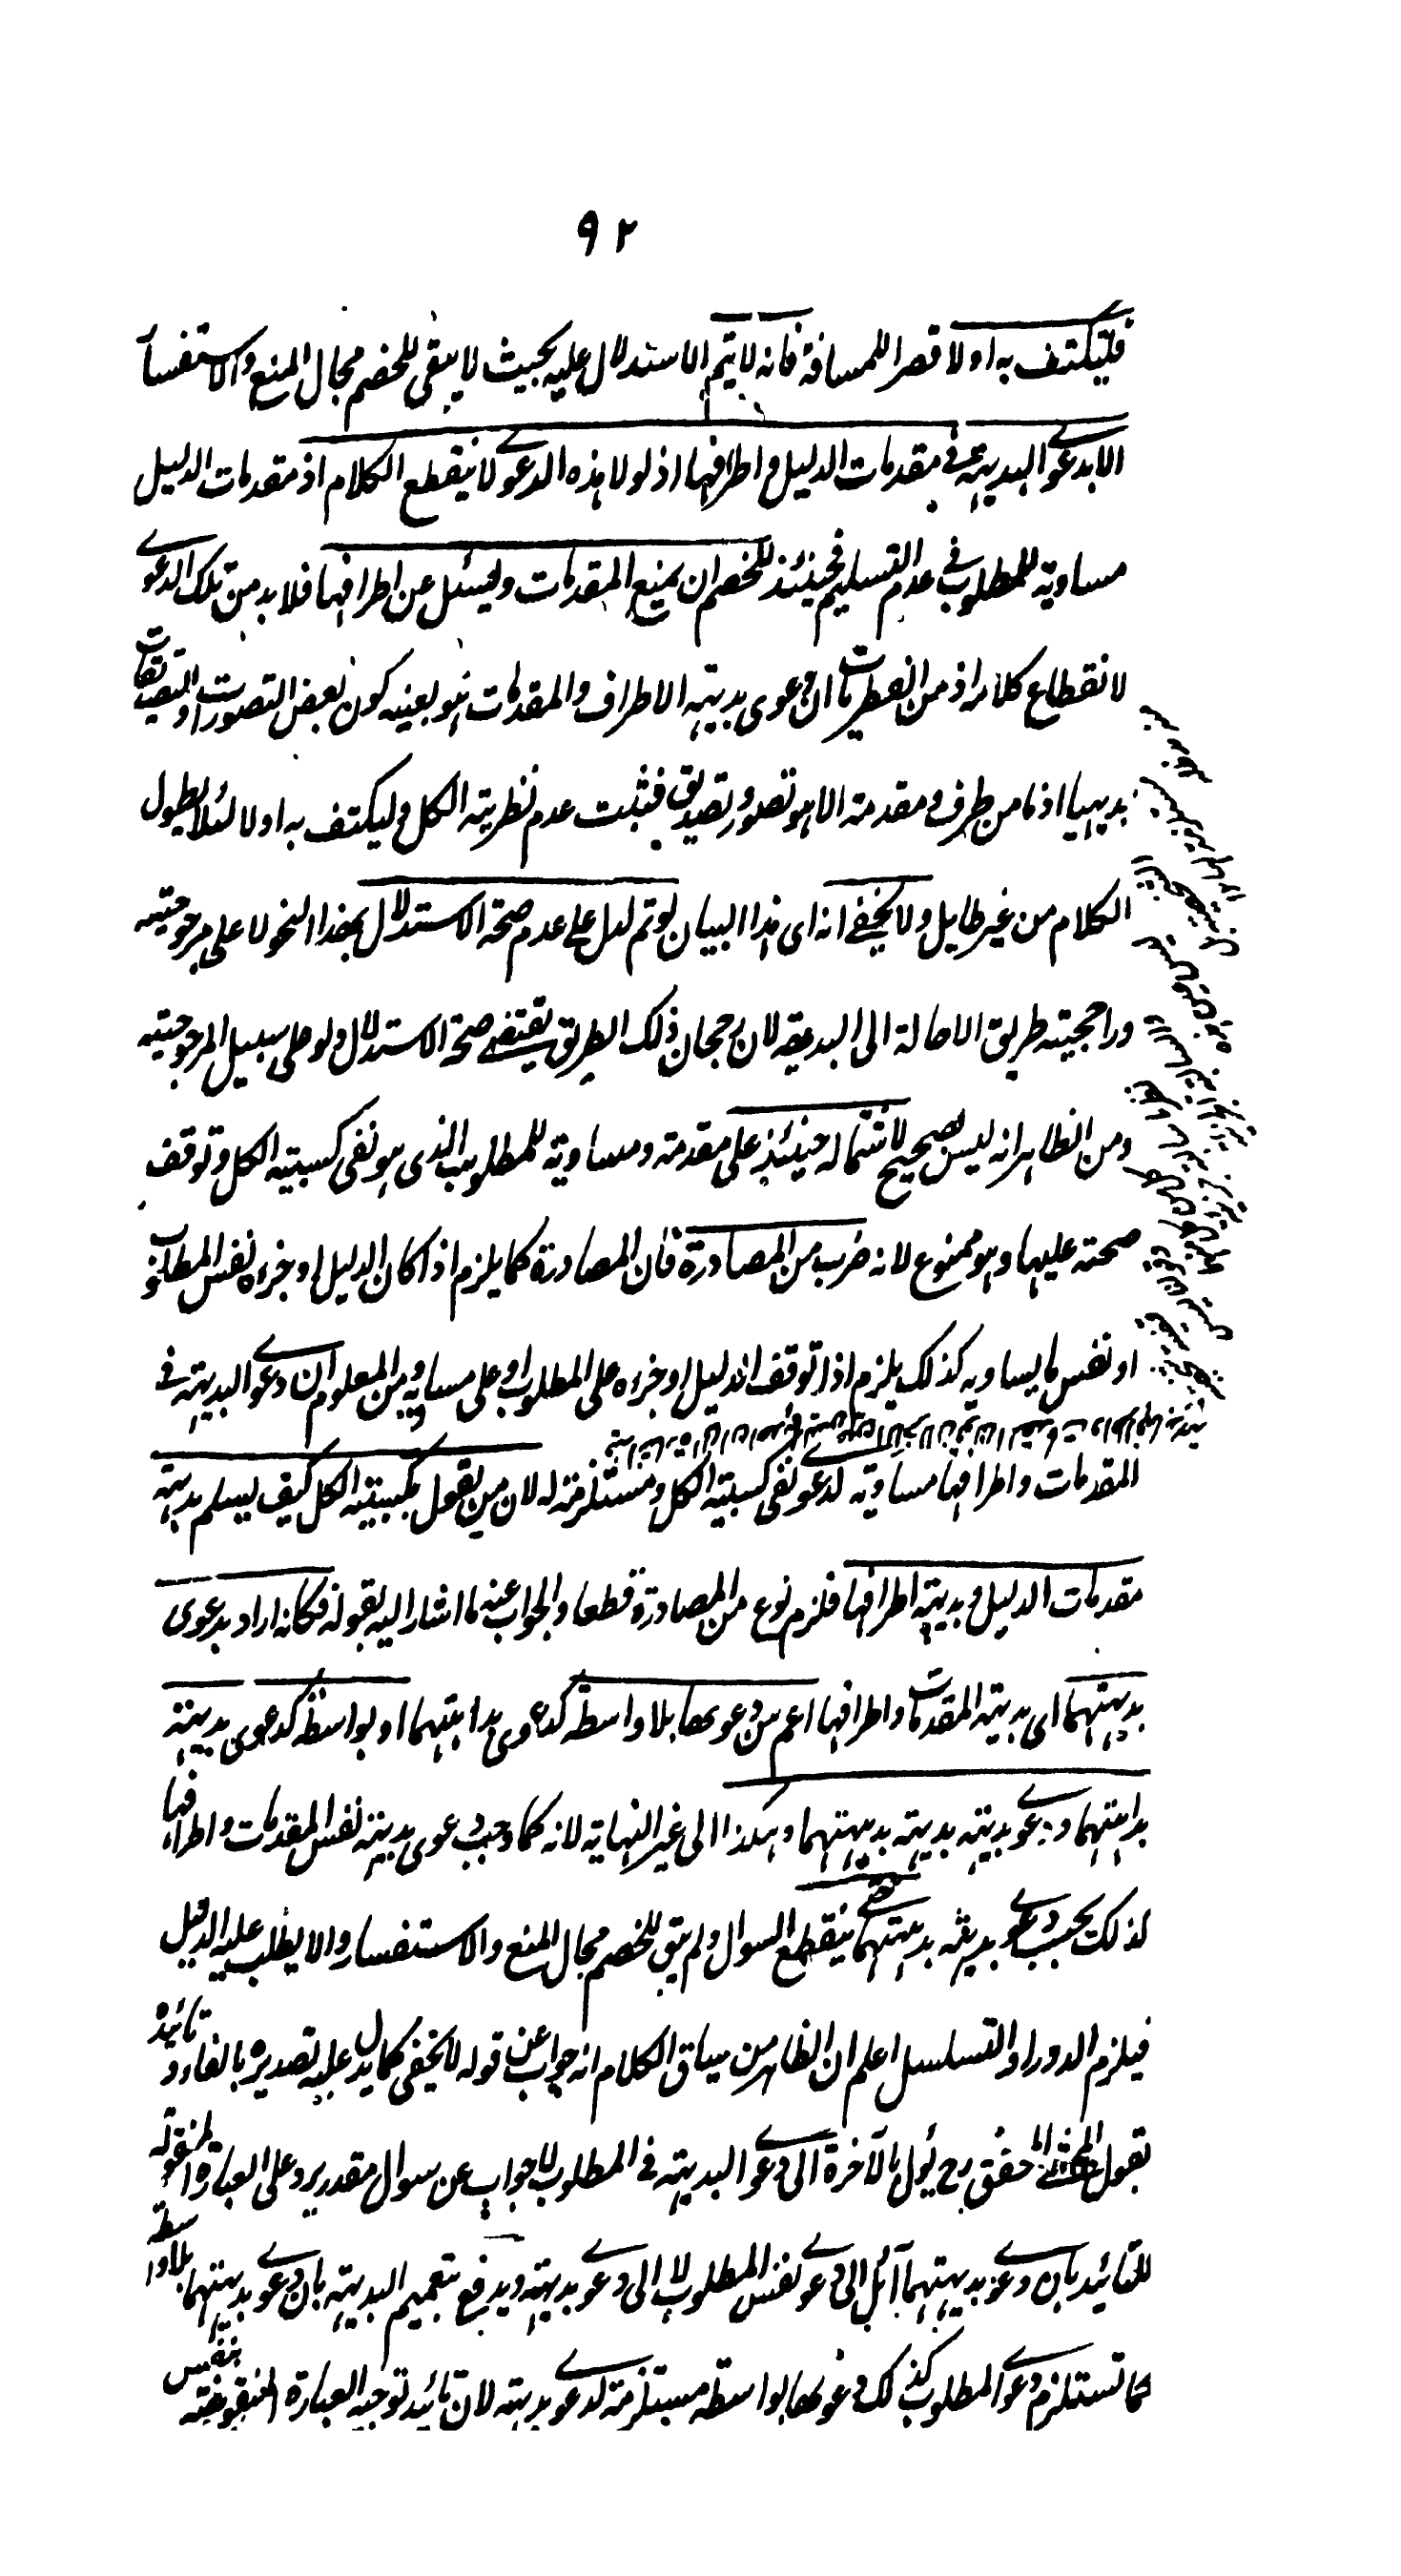 ٩٢
فليكتف به اولا قصرا للمسافة فانه لا يتم الاستدلال عليه بحيث لا يبقى للخصم مجال المنع والاستفسا
الا بدعوے البديهة في مقدمات الدليل واطرافها اذ لولا هذه الدعوے لا ينقطع الكلام اذ مقدمات الدليل
مساوية للمطلوب في عدم التسليم فحينئذ للخصم ان يمنع المقدمات ويسئل عن اطرافها فلا بد من تلك الدعوے
لانقطاع كلامه اذ من الفطريات ان دعوى بديهة الاطراف والمقدمات هو بعينه كون بعض التصورات والتصديقات
بديهيا اذ ما من طرف ومقدمة الا هو تصور وتصديق فثبت عدم نظرية الكل وليكتف به اولا لئلا يطول
الكلام من غير طايل ولا يخفے انه اى هذا البيان لو تم لدل على عدم صحة الاستدلال بهذا النحو لا على مرجوحيته
وراجحيته طريق الاحالة الى البديهة لان رجحان ذلك الطريق يقتضے صحة الاستدلال ولو على سبيل المرجوحيته
ومن الظاهر انه ليس بصحيح لاشتماله حينئذ على مقدمة ومساوية للمطلوب الذى هو نفى كسبية الكل وتوقف
صحته عليها وهو ممنوع لانه ضرب من المصادرة فان المصادرة كما يلزم اذا كان الدليل او جزءه نفس المطلوب
او نفس ما يساويه كذلك يلزم اذا توقف الدليل او جزءه على المطلوب او على مساويه ومن المعلوم ان دعوے البديهة في
المقدمات واطرافها مساوية لدعوے نفى كسبية الكل ومستلزمة له لان من يقول بكسبية الكل كيف يسلم بديهة
مقدمات الدليل وبديهة اطرافها فلزم نوع من المصادرة قطعا والجواب عنه ما اشار اليه بقوله فكانه اراد بدعوى
بديهتهما اى بديهة المقدمات واطرافها اعم من دعوىها بلا واسطة كدعوى بداهتهما او بواسطة كدعوى بديهة
بداهتهما ودعوے بديهة بديهة بديهتهما وهكذا الى غير النهاية لانه كما وجب دعوى بديهة نفس المقدمات واطرافها
كذلك يجب دعوے بديهة بديهتهما حتے ينقطع السوال ولم يبق للخصم مجال المنع والاستفسار والا يطلب عليه الدليل
فيلزم الدور او التسلسل اعلم ان الظاهر من سياق الكلام انه جواب عن قوله لا يخفى كما يدل عليه تصديره بالفاء وتائيده
بقول المحشے المحقق رح يئول بالآخرة الى دعوے البديهة في المطلوب لا جواب عن سوال مقدر يرد على العبارة المنقولة
للتائيد بان دعوے بديهتهما آئل الى دعوے نفس المطلوب لا الى دعوے بديهته ويدفع بتعميم البديهة بان دعوے بديهتهما بلا واسطة
كما تستلزم دعوے المطلوب كذلك دعوىها بواسطة مستلزمة لدعوے بديهته لان تائيد توجيه العبارة المنقوضة بنفس